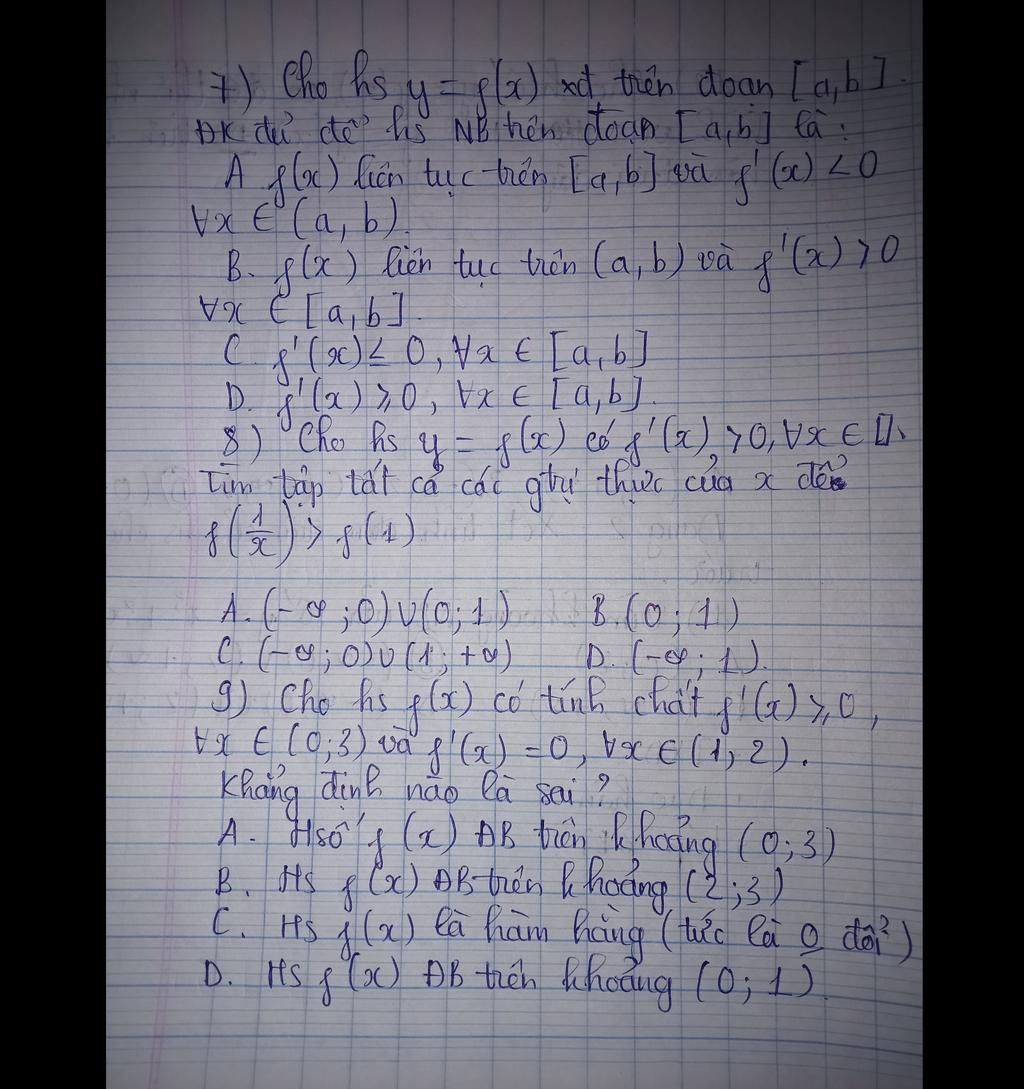 7) Cho hs y = f(x) xđ trên đoạn [a,b].
ĐK đủ để hs NB trên đoạn [a,b] là:
A f(x) liên tục trên [a,b] và f'(x) < 0
∀x ∈ (a, b).
B. f(x) liên tục trên (a,b) và f'(x) > 0
∀x ∈ [a,b].
C. f'(x) ≤ 0, ∀x ∈ [a,b]
D. f'(x) ⩾ 0, ∀x ∈ [a,b].
8) Cho hs y = f(x) có f'(x) > 0, ∀x ∈ 𝐷.
Tìm tập tất cả các gtrị thực của x để
f(1/x) > f(1)
A. (-∞; 0) ∪ (0; 1) B. (0; 1)
C. (-∞; 0) ∪ (1; +∞) D. (-∞; 1).
9) Cho hs f(x) có tính chất f'(x) ⩾ 0,
∀x ∈ (0;3) và f'(x) = 0, ∀x ∈ (1; 2).
Khẳng định nào là sai?
A. Hsố f(x) ĐB trên khoảng (0; 3)
B. Hs f(x) ĐB trên khoảng (2; 3)
C. Hs f(x) là hàm hằng (tức là 0 đổi)
D. Hs f(x) ĐB trên khoảng (0; 1)